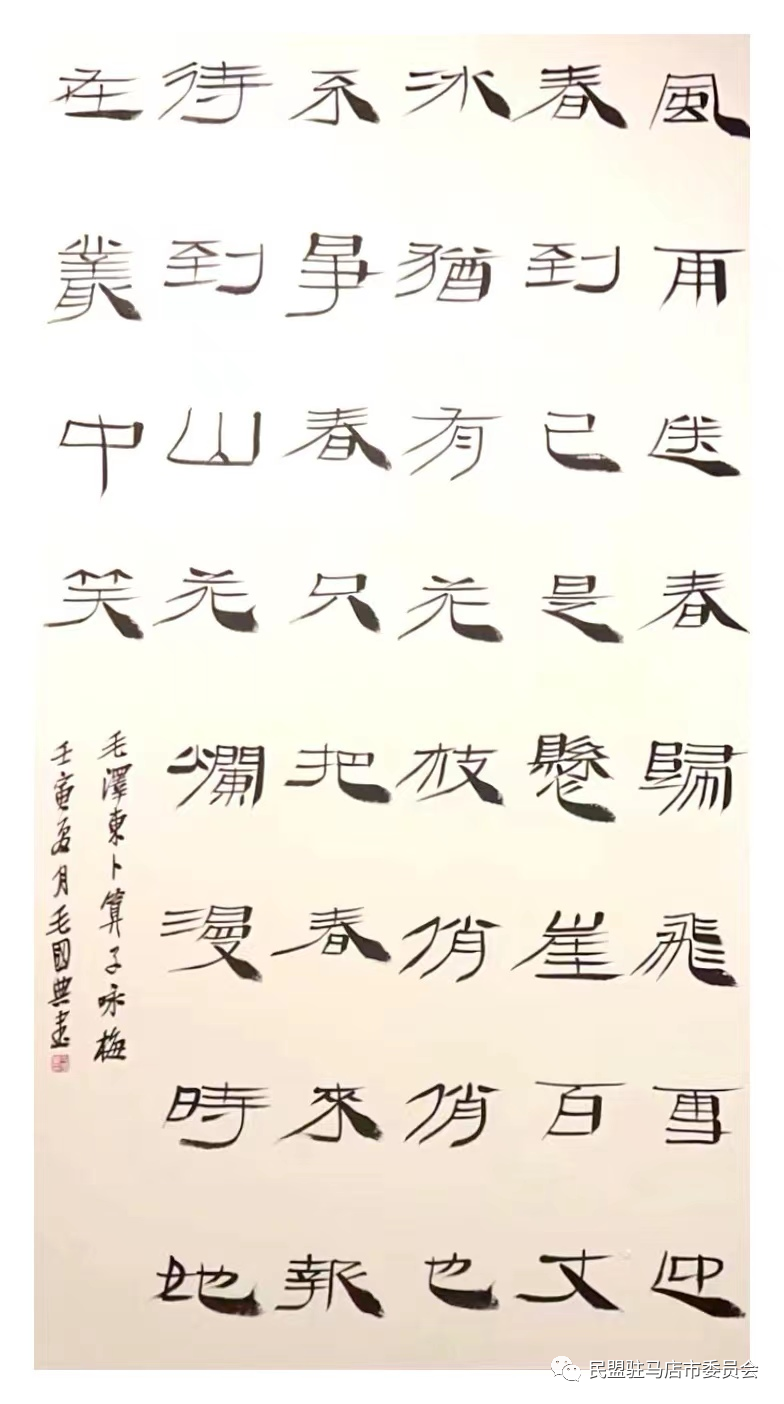 風雨送春歸飛雪迎
春到已是懸崖百丈
冰猶有花枝俏俏也
不爭春只把春來報
待到山花爛漫時她
在叢中笑
毛澤東卜算子咏梅
壬寅夏月毛國典書
民盟驻马店市委员会